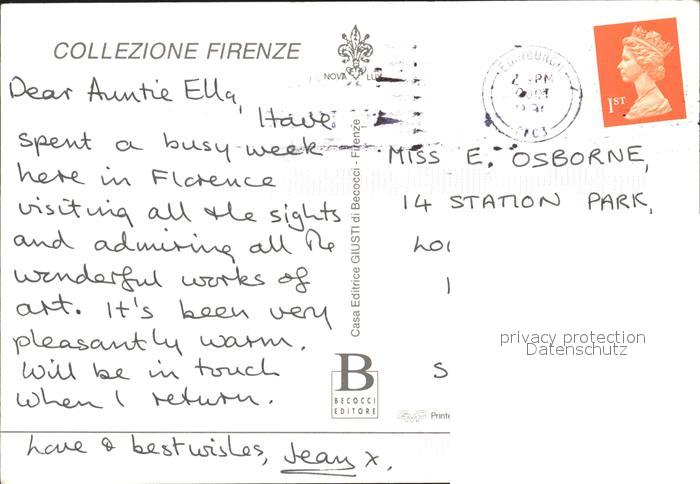 COLLEZIONE FIRENZE
NOVA LUX
Dear Auntie Ella,
Have
spent a busy week
here in Florence
visiting all the sights
and admiring all the
wonderful works of
art. It's been very
pleasantly warm.
Will be in touch
when I return.
Love & best wishes, Jean x.
Casa Editrice GIUSTI di Becocci - Firenze
B
BECOCCI
EDITORE
EDINBURGH
PM
1ST
MISS E. OSBORNE,
14 STATION PARK,
LO
S
Printe
privacy protection
Datenschutz